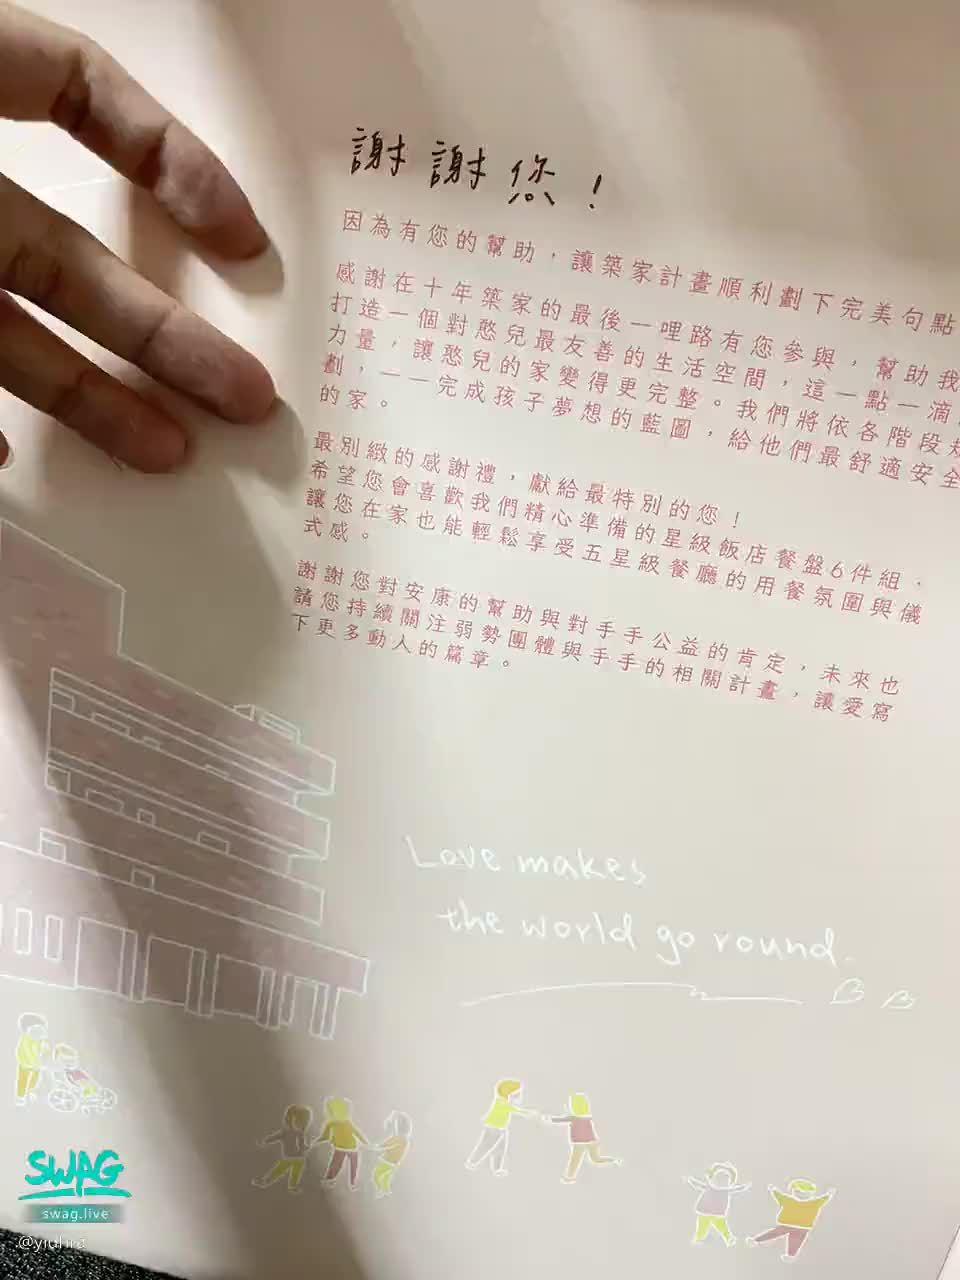 謝謝您！
因為有您的幫助，讓築家計畫順利劃下完美句點
感謝在十年築家的最後一哩路有您參與，幫助我
打造一個對憨兒最友善的生活空間，這一點一滴
力量，讓憨兒的家變得更完整。我們將依各階段規
劃，一一完成孩子夢想的藍圖，給他們最舒適安全
的家。
最別緻的感謝禮，獻給最特別的您！
希望您會喜歡我們精心準備的星級飯店餐盤6件組，
讓您在家也能輕鬆享受五星級餐廳的用餐氛圍與儀
式感。
謝謝您對安康的幫助與對手手公益的肯定，未來也
請您持續關注弱勢團體與手手的相關計畫，讓愛寫
下更多動人的篇章。
Love makes
the world go round.
SWAG
swag.live